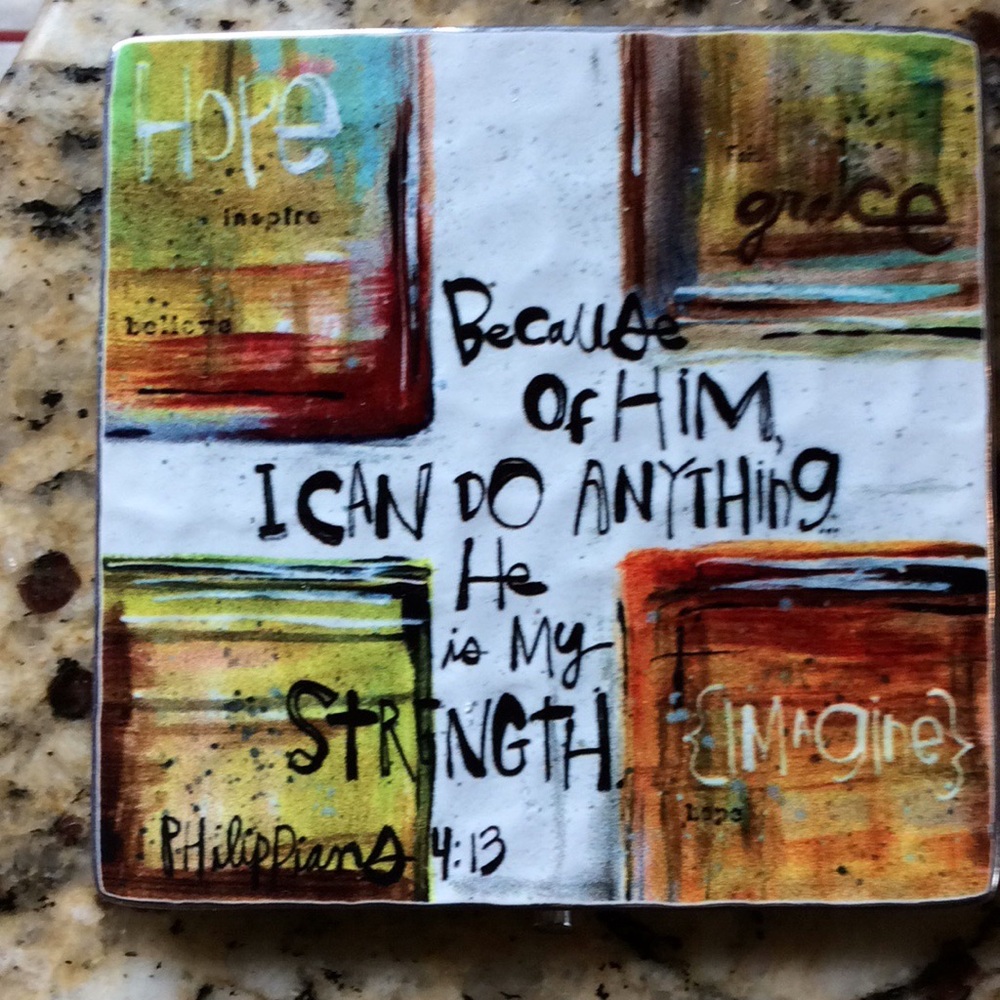 HOPE
inspire
believe
grace
Because
Of HiM,
I CAN DO ANYTHing
He
is My
STRENGTH.
{IMAgine}
hope
PHilipPians 4:13